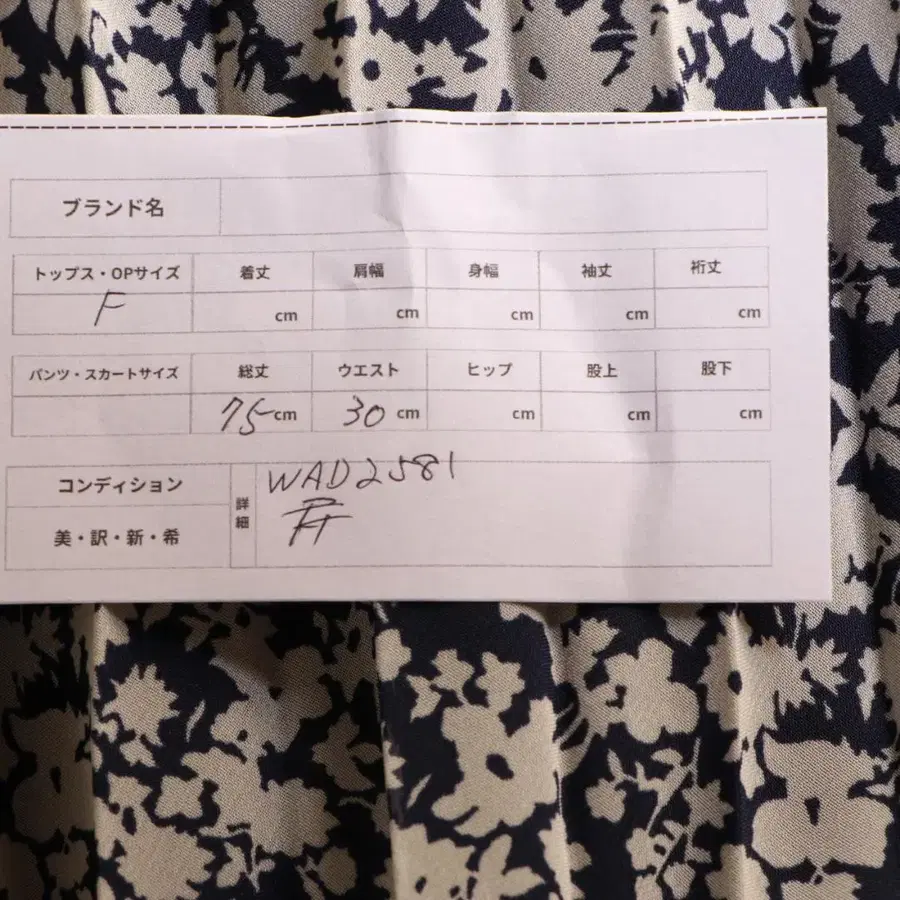 ブランド名
トップス・OPサイズ 着丈 肩幅 身幅 袖丈 裄丈
F cm cm cm cm cm
パンツ・スカートサイズ 総丈 ウエスト ヒップ 股上 股下
75cm 30cm cm cm cm
コンディション 詳細 WAD2581
美・訳・新・希